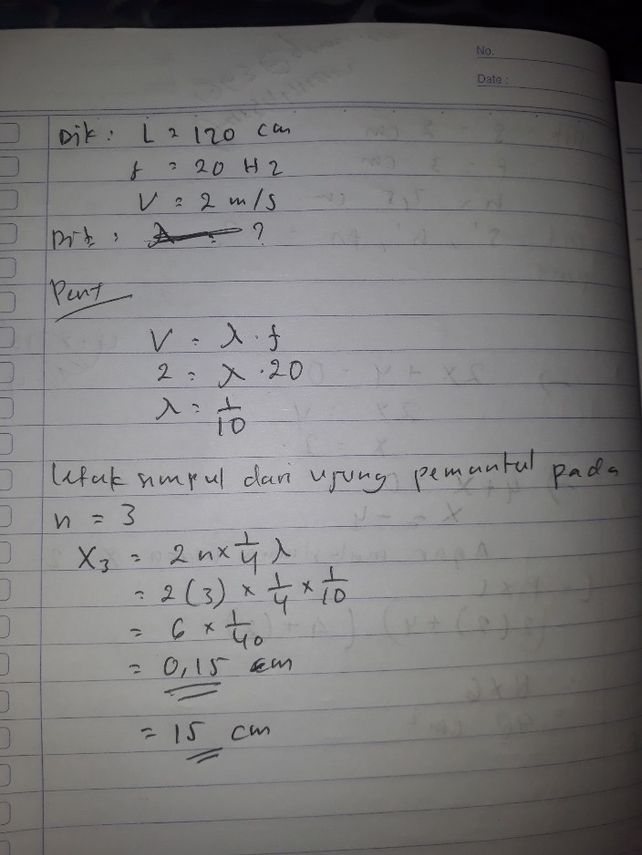 No.
Date :
Dik : L = 120 cm
f = 20 Hz
V = 2 m/s
Dit : ?
Peny
V = λ . f
2 = λ . 20
λ = 1/10
Letak simpul dari ujung pemantul pada
n = 3
X₃ = 2n x 1/4 λ
= 2(3) x 1/4 x 1/10
= 6 x 1/40
= 0,15 m
= 15 cm